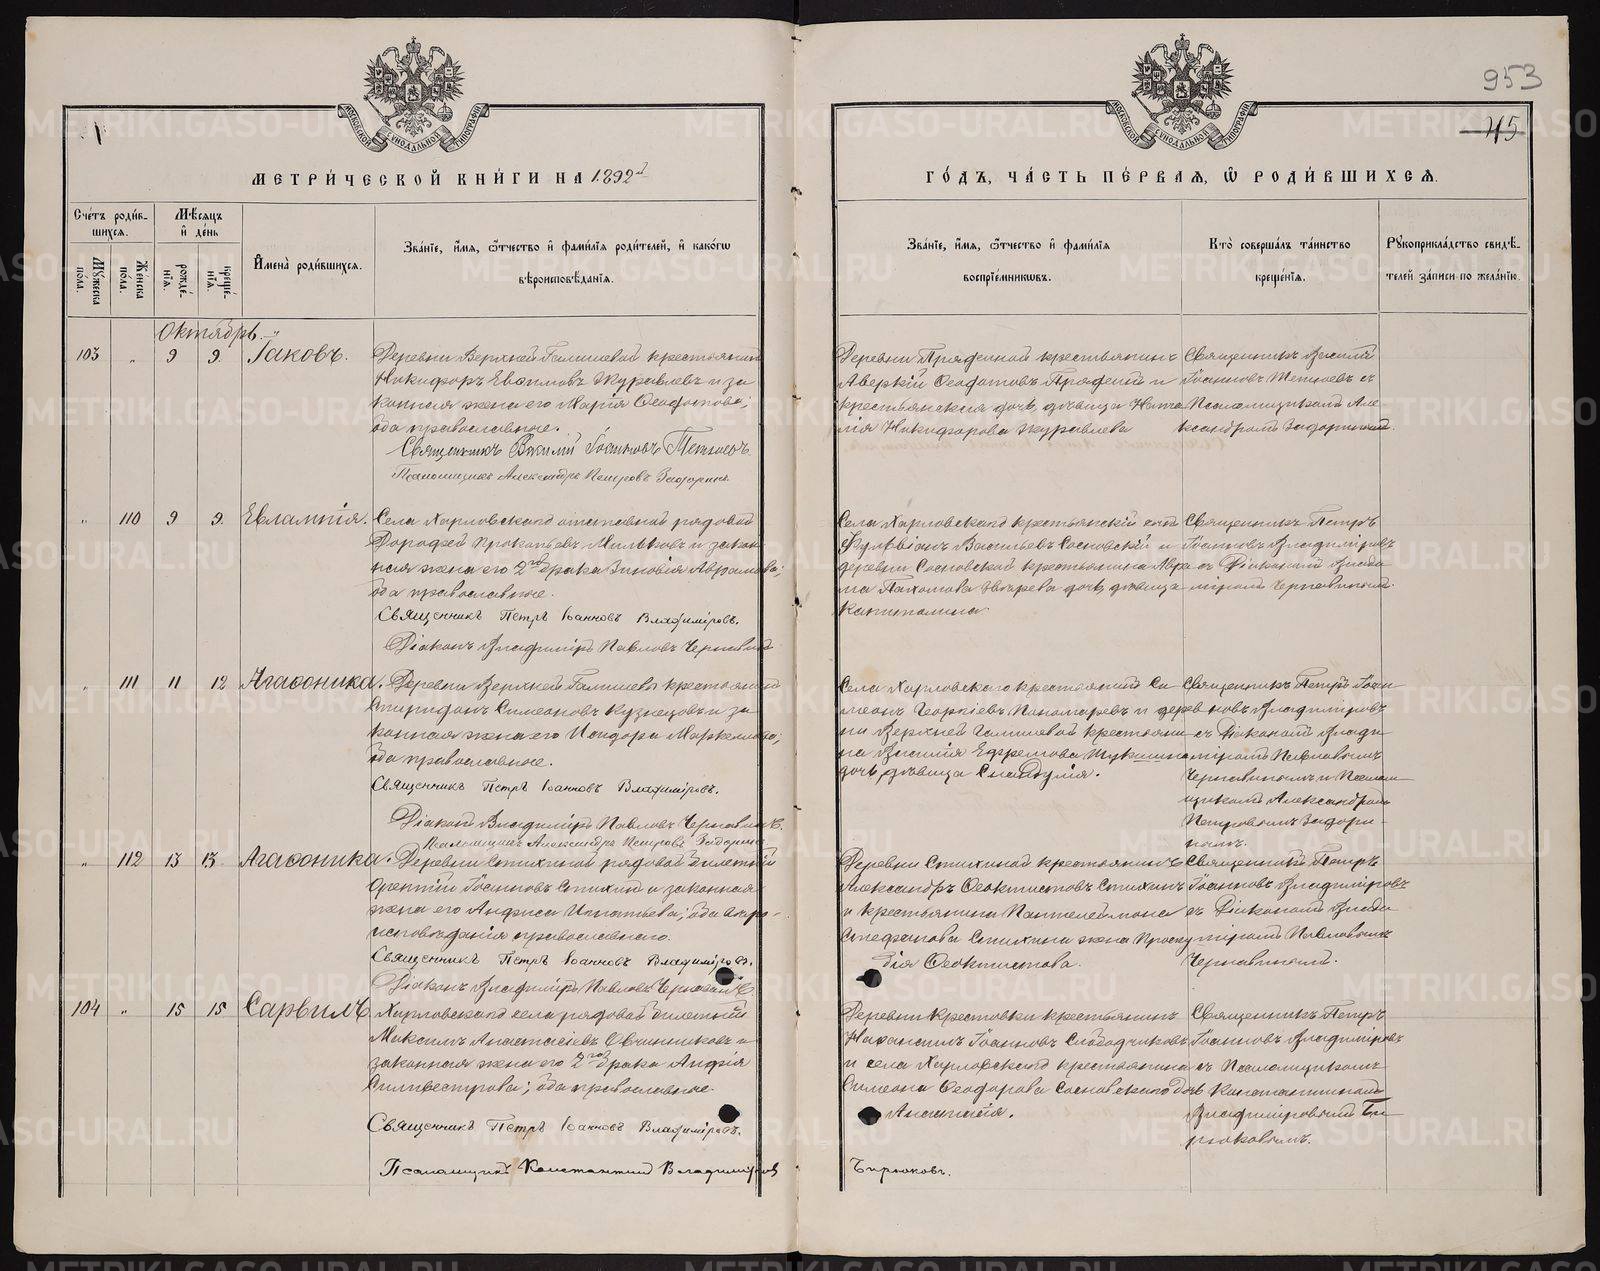 953
45
МЕТРИ́ЧЕСКОЙ КНИ́ГИ НА 1892й
ГО́ДЪ, ЧА́СТЬ ПЕ́РВАЯ, Ѽ РОДИ́ВШИХСЯ.
Сче́тъ роди́в-
шихся.
Му́жеска по́ла.
Же́нска по́ла.
Мѣ́сяцъ и де́нь
рожде́нія.
креще́нія.
Имена̀ роди́вшихся.
Зва́ніе, и́мя, ѻ́тчество и фами́лія роди́телей, и како́гѡ
вѣроисповѣ́данія.
Зва́ніе, и́мя, ѻ́тчество и фами́лія
воспріе́мниковъ.
Кто̀ соверша́лъ та́инство
креще́нія.
Рꙋкоприкла́дство свидѣ́-
телей за́писи по жела́нію.
Октябрь.
103 " 9 9. Іаковъ.
Деревни Верхней Галишевой крестьянинъ
Никифоръ Евѳимовъ Журавлевъ и за
конная жена его Марія Ѳеофанова;
оба православные.
Священникъ Василій Іоанновъ
Псаломщикъ Александръ Петровъ Задоринъ
Деревни Пряденной крестьянинъ
Аверкій
крестьянская дочь, дѣвица Ната
лія Никифорова Журавлева
Священникъ Василій
Іоанновъ съ
Псаломщикомъ Але
ксандромъ Задоринымъ.
" 110 9 9. Евлампія.
Села Харловскаго отставной рядовой
Дорофей Прокопьевъ Мильковъ и закон
ная жена его 2го брака Зиновія Аврамова;
оба православные.
Священникъ Петръ Іоанновъ Владиміровъ.
Діаконъ Владиміръ Павловъ Чернавинъ
Села Харловскаго крестьянскій сынъ
Васильевъ Сосновскій и
деревни Сосновской крестьянина
Пахомова дочь, дѣвица
Капитолина.
Священникъ Петръ
Іоанновъ Владиміровъ
съ Діакономъ Влади
міромъ Чернавинымъ.
" 111 11 12 Агаѳоника.
Деревни Верхней Галишевы крестьянинъ
Спиридонъ Симеоновъ Кузнецовъ и за
конная жена его Исидора Маркеллова;
оба православные.
Священникъ Петръ Іоанновъ Владиміровъ.
Діаконъ Владиміръ Павловъ Чернавинъ.
Псаломщикъ Александръ Петровъ Задоринъ
Села Харловскаго крестьянинъ Си
меонъ Георгіевъ Пономаревъ и дерев
ни Верхней Галишевой крестьяни
на Василія Ефремова
дочь, дѣвица
Священникъ Петръ Іоан
новъ Владиміровъ
съ Діакономъ Влади
міромъ Павловымъ
Чернавинымъ и Псалом
щикомъ Александромъ
Петровымъ Задори
нымъ.
" 112 13 13. Агаѳоника.
Деревни Стихиной рядовой билетный
Орентій Іоанновъ Стихинъ и законная
жена его Анфиса Игнатьева; оба вѣро-
исповѣданія православнаго.
Священникъ Петръ Іоанновъ Владиміровъ.
Діаконъ Владиміръ Павловъ Чернавинъ
Деревни Стихиной крестьянинъ
Александръ Ѳеоктистовъ Стихинъ
и крестьянина Пантелеимона
Стефанова Стихина жена Проску
Ѳеоктистова.
Священникъ Петръ
Іоанновъ Владиміровъ
съ Діакономъ Влади
міромъ Павловымъ
Чернавинымъ.
104 " 15 15 Сарвилъ
Харловскаго села рядовой билетный
Максимъ Анастасіевъ Овчинниковъ и
законная жена его 2го брака Анфія
Силивестрова; оба православные.
Священникъ Петръ Іоанновъ Владиміровъ.
Псаломщикъ Константинъ Владиміровъ
Деревни Крестовки крестьянинъ
Іоанновъ Слободчиковъ
и села Харловскаго крестьянина
Симеона Ѳеодорова Сосновскаго дочь
Анастасія.
Священникъ Петръ
Іоанновъ Владиміровъ
съ Псаломщикомъ
Константиномъ
Владиміровымъ Би
рюковымъ.
Бирюковъ.
METRIKI.GASO-URAL.RU